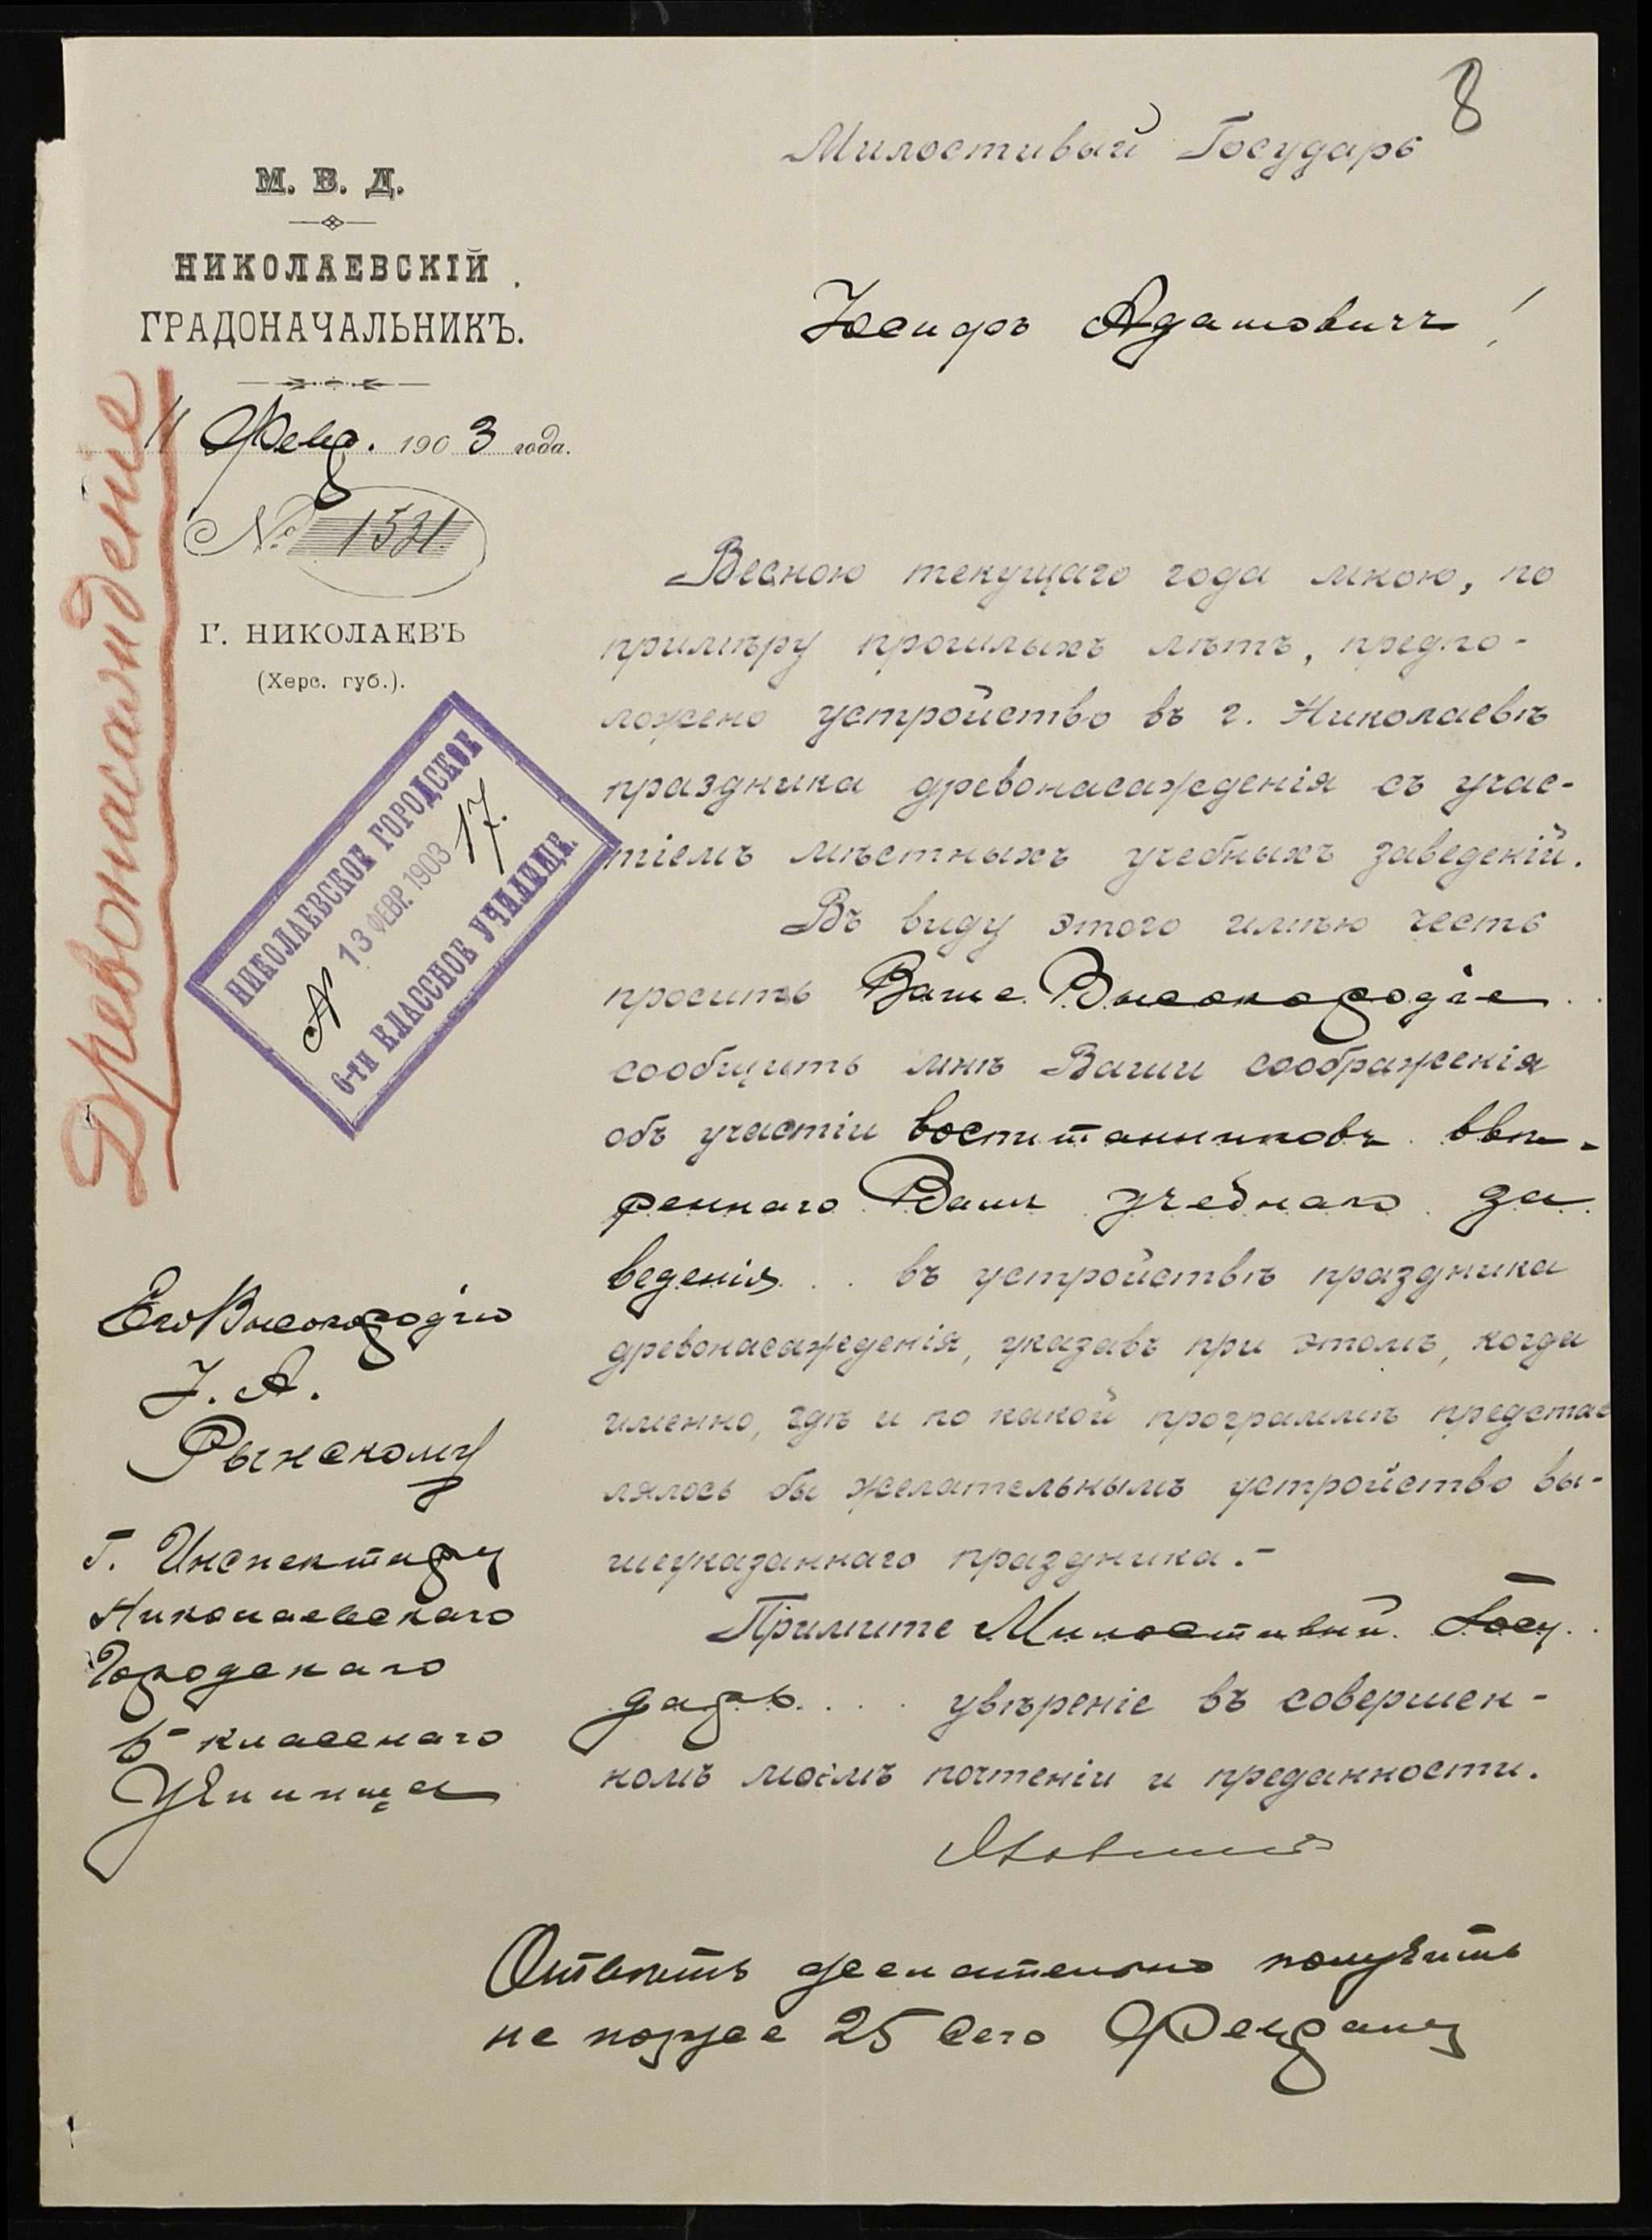 8
М. В. Д.
НИКОЛАЕВСКІЙ
ГРАДОНАЧАЛЬНИКЪ.
11 Февр. 1903 года.
№ 1531
Г. НИКОЛАЕВЪ
(Херс. губ.).
Древонасажденіе
НИКОЛАЕВСКОЕ ГОРОДСКОЕ
13 ФЕВР. 1903
№ 17.
6-ТИ КЛАССНОЕ УЧИЛИЩЕ.
Его Высокородію
І. А.
Рынскому
Г. Инспектору
Николаевскаго
Городскаго
6-класснаго
Училища
Милостивый Государь
Іосифъ Адамовичъ!
Весною текущаго года мною, по
примѣру прошлыхъ лѣтъ, предпо-
ложено устройство въ г. Николаевѣ
праздника древонасажденія съ учас-
тіемъ мѣстныхъ учебныхъ заведеній.
Въ виду этого имѣю честь
просить Ваше Высокородіе
сообщить мнѣ Ваши соображенія
объ участіи воспитанниковъ ввѣ-
реннаго Вамъ учебнаго за
веденія въ устройствѣ праздника
древонасажденія, указавъ при этомъ, когда
именно, гдѣ и по какой программѣ представ
лялось бы желательнымъ устройство вы-
шеуказаннаго праздника.-
Примите Милостивый Госу
дарь увѣреніе въ совершен-
номъ моемъ почтеніи и преданности.
Отвѣтъ желательно получить
не позже 25 сего Февраля